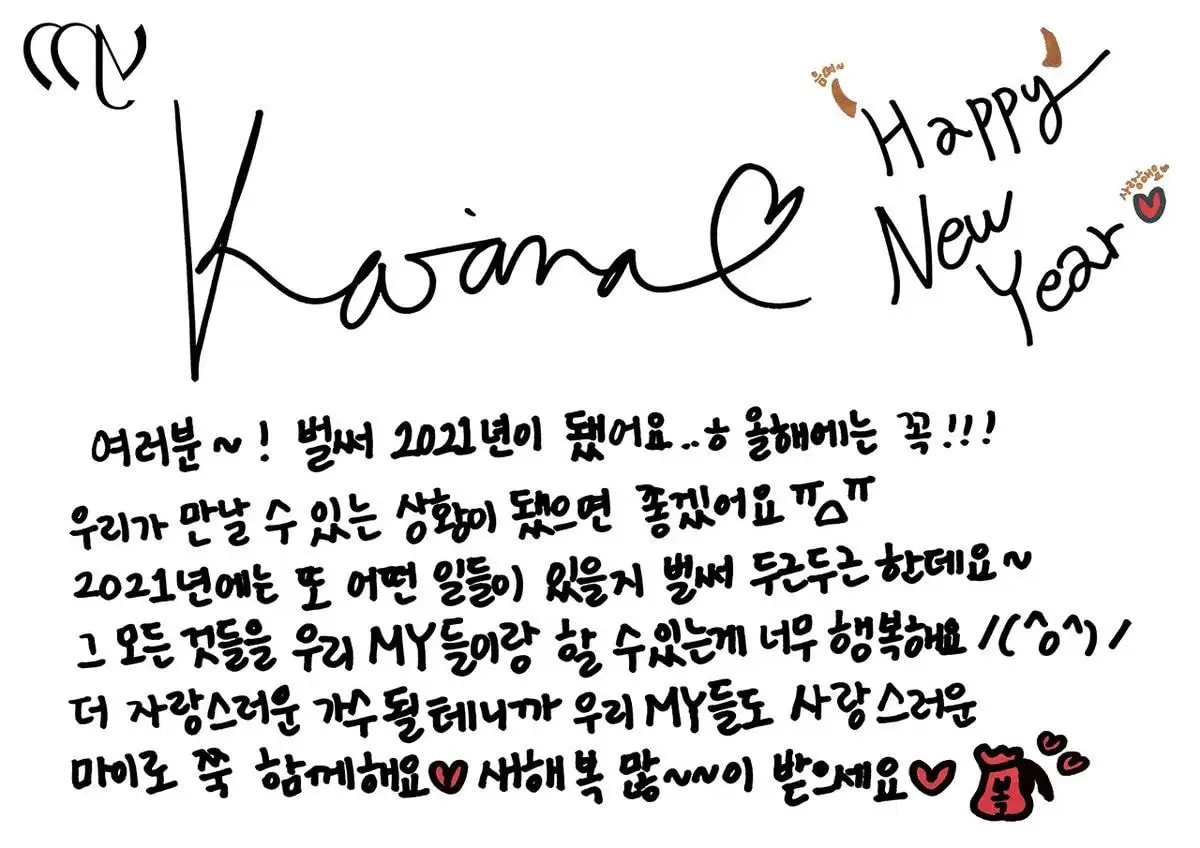 MY
Karina
음머~
Happy
New
Year
사랑해요♡
여러분~! 벌써 2021년이 됐어요..ㅎ 올해에는 꼭!!!
우리가 만날 수 있는 상황이 됐으면 좋겠어요ㅠ△ㅠ
2021년에는 또 어떤 일들이 있을지 벌써 두근두근 한데요~
그 모든 것들을 우리 MY들이랑 할 수 있는게 너무 행복해요 /(^o^)/
더 자랑스러운 가수 될테니까 우리 MY들도 사랑스러운
마이로 쭉 함께해요♥ 새해 복 많~~~이 받으세요♥
복